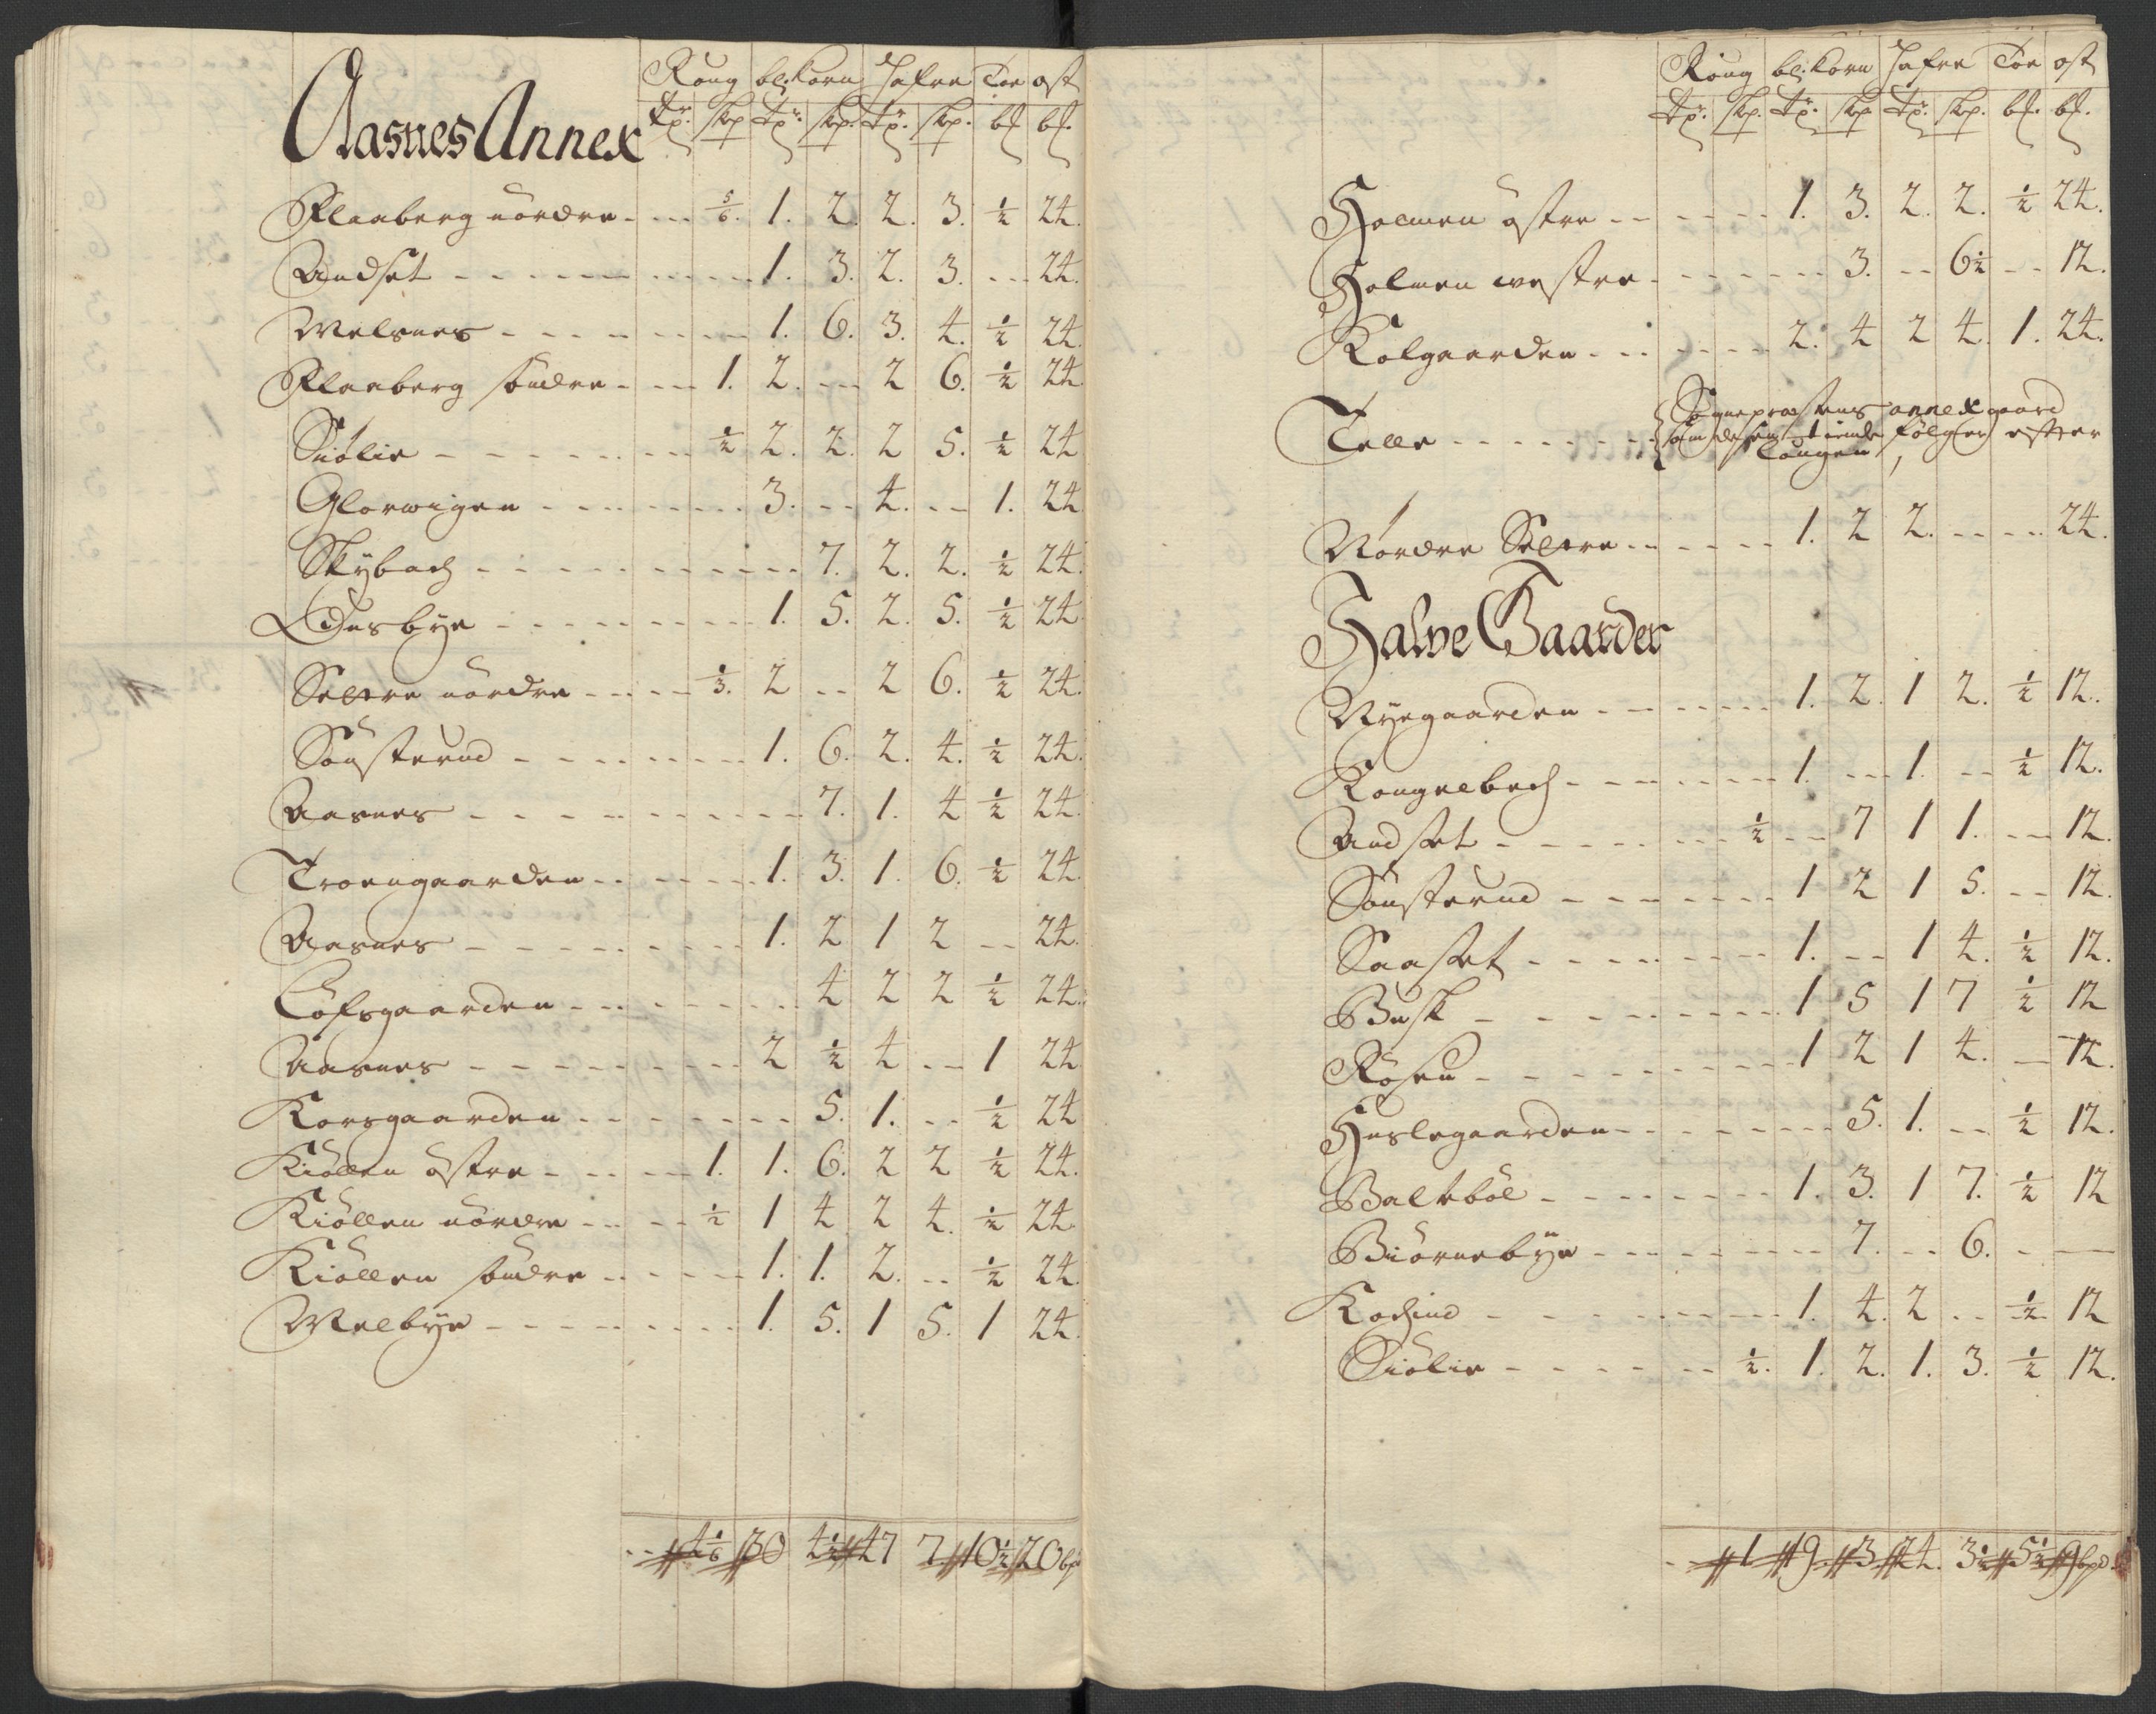 Aasnes Annex
Roug bl: Korn Hafre Toe ost
tr. skp tr. skp. tr. skp. bl bl.
Flaaberg nordre - - - 5/6. 1. 2. 2. 3. ½ 24.
Andset - - - 1. 3. 2. 3. - - 24.
Melsnes - - - 1. 6. 3. 4. ½ 24.
Flaaberg söndre - - - 1. 2. - - 2 6. ½ 24.
Siölie - - - ½ 2. 2. 2 5. ½ 24
Glorwigen - - - 3. - - 4. - - 1. 24
Skybach - - - 7. 2. 2. ½ 24.
Odersbye - - - 1. 5. 2. 5. ½ 24
Seltre nordre - - - 1/3. 2 - - 2 6. ½ 24.
Sönsterud - - - 1. 6. 2. 4. ½ 24.
Aasnes - - - 7. 1. 4 ½ 24.
Troengaarden - - - 1. 3. 1. 6. ½ 24.
Aasnes - - - 1. 2 1 2 - - 24.
Lofsgaarden - - - 4 2 2 ½ 24.
Aasnes - - - 2 ½ 4 - - 1 24
Korsgaarden - - - 5. 1. - - ½ 24
Kiöllen östre - - - 1. 1. 6. 2 2 ½ 24.
Kiöllen nordre - - - ½ 1 4 2 4. ½ 24.
Kiöllen söndre - - - 1. 1. 2. - - ½ 24.
Melbye - - - 1. 5. 1 5. 1 24.
4 1/6 30 4½ 47 7 10½ 20 bpd
Roug bl: Korn Hafre Toe ost
tr. skp. tr. skp tr. skp. bl. bl.
Holmen östre - - - 1. 3. 2. 2. ½ 24.
Holmen westre - - - 3. - - 6½ - - 12.
Kolgaarden - - - 2. 4 2 4. 1. 24.
Telle - - - Sognepræstens annexgaard
som desen tiende følger efter
Nordre Seltre - - - 1. 2 2. - - - 24.
Halve Gaarder
Nyegaarden - - - 1. 2. 1 2. ½ 12.
Kongelbech - - - 1. - - 1. - - ½ 12.
Andset - - - ½ - - 7 1 1. - - 12.
Sönsterud - - - 1 2 1 5. - - 12.
Saaset - - - 1. - - 1 4. ½ 12.
Busk - - - 1 5 1 7 ½ 12
Rosen - - - 1 2 1 4. - 12.
Haslegaarden - - - 5. 1. - - ½ 12.
Balteböl - - - 1. 3. 1 7. ½ 12
Biörnebye - - - 7. - - 6. - -
Kodsind - - - 1. 4. 2 - - ½ 12
Siölie - - - ½. 1. 2. 1. 3. ½ 12.
1 19. 3 24. 3½ 5½ 9 bpd